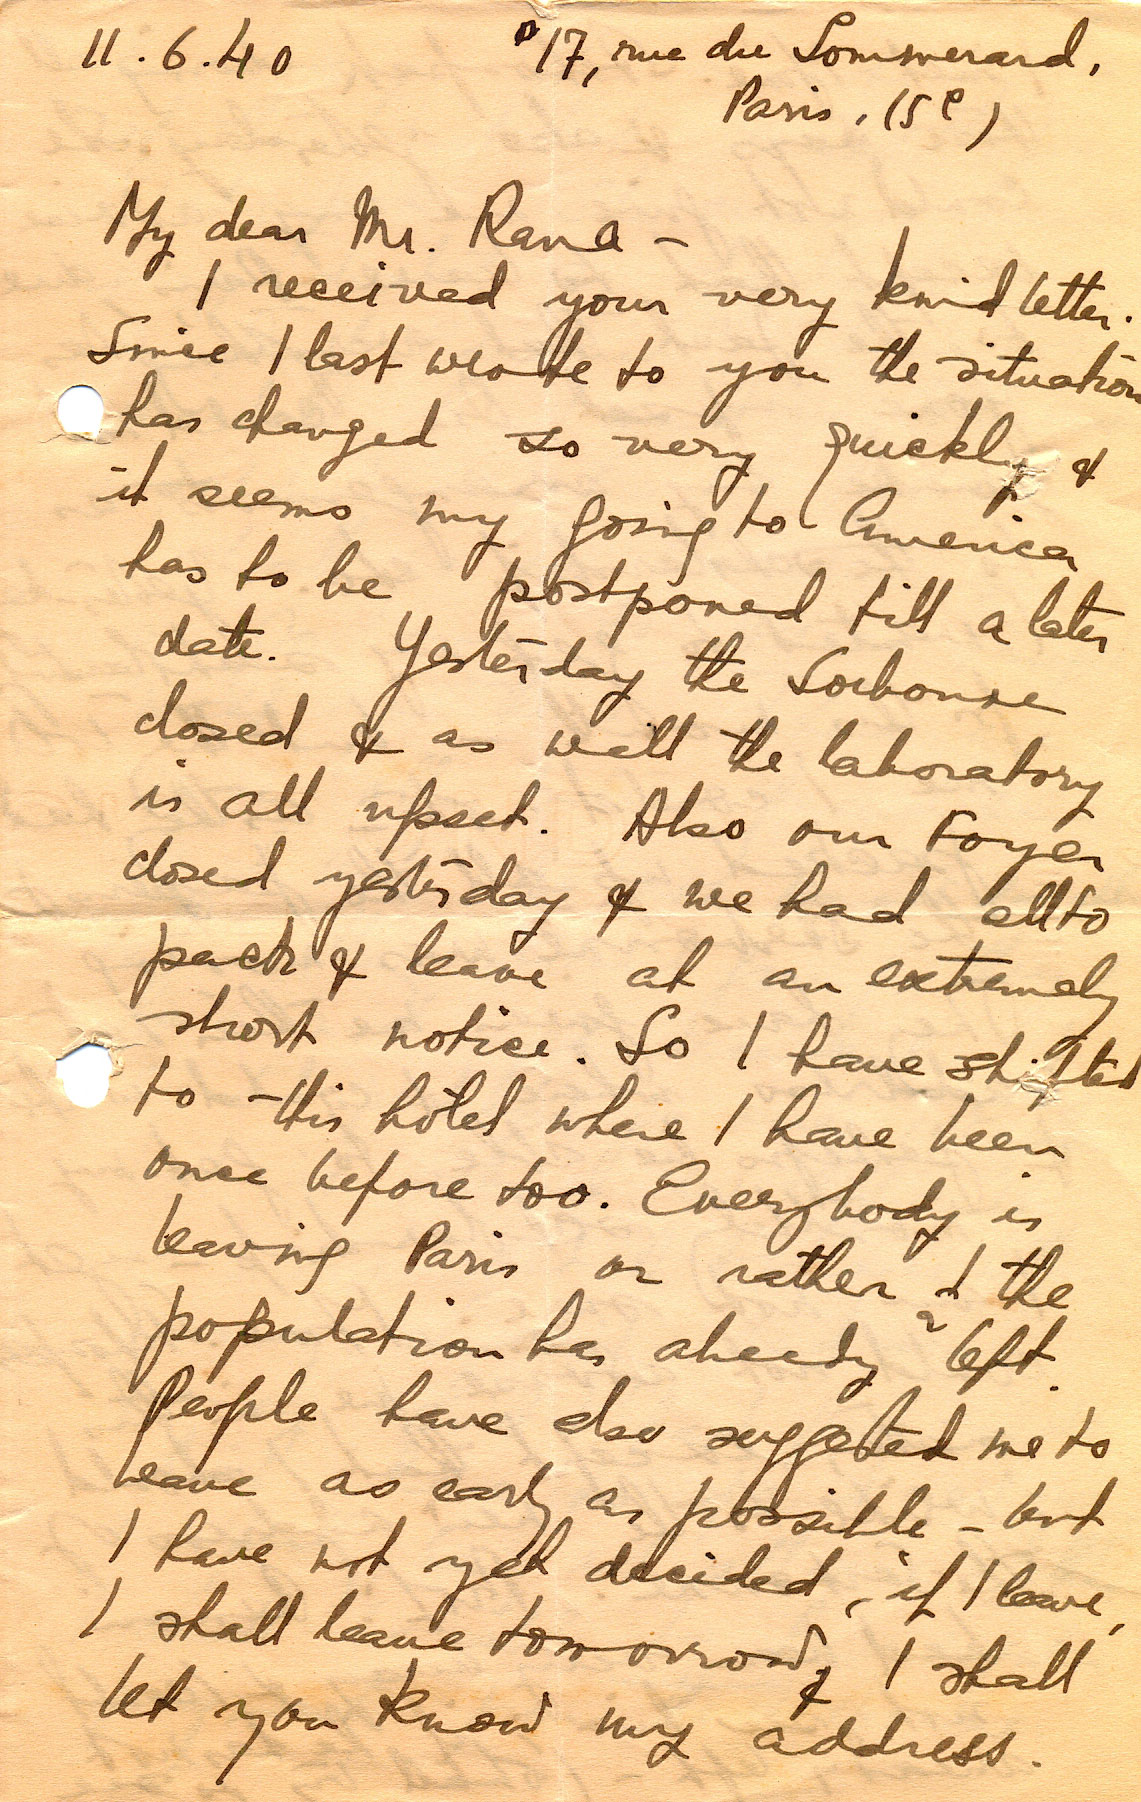 11.6.40
17, rue du Sommerard,
Paris, (5e)
My dear Mr. Rana -
I received your very kind letter.
Since I last wrote to you the situation
has changed so very quickly &
it seems my going to America
has to be postponed till a later
date. Yesterday the Sorbonne
closed & as well the laboratory
is all upset. Also our Foyer
closed yesterday & we had all to
pack & leave at an extremely
short notice. So I have shifted
to this hôtel where I have been
once before too. Everybody is
leaving Paris or rather the
population has already left.
People have also suggested me to
leave as early as possible - but
I have not yet decided, if I leave,
I shall leave tomorrow & I shall
let you know my address.